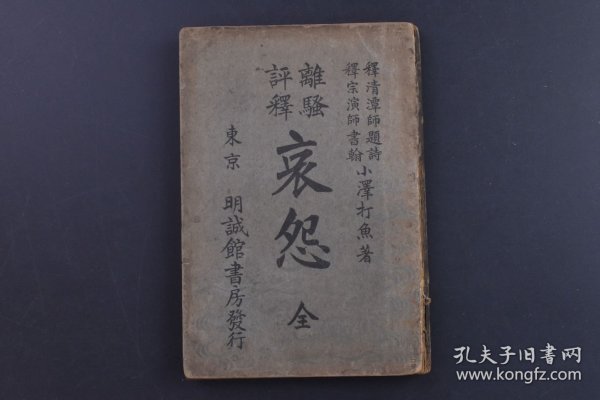 釋清潭師題詩
釋宗演師書翰
小澤打魚著
離騷
評釋
哀怨 全
東京 明誠館書房發行
孔夫子旧书网
www.kongfz.com